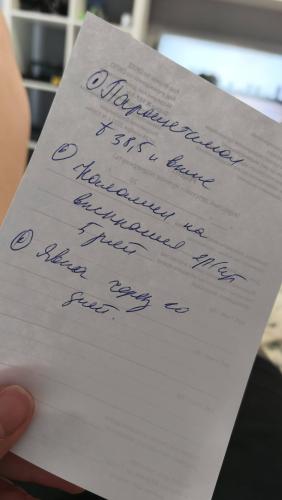 ① Парацетамол
t 38,5 и выше
② Каламин на
высыпания 2р/сут
5 дней
③ Явка через 10
дней.